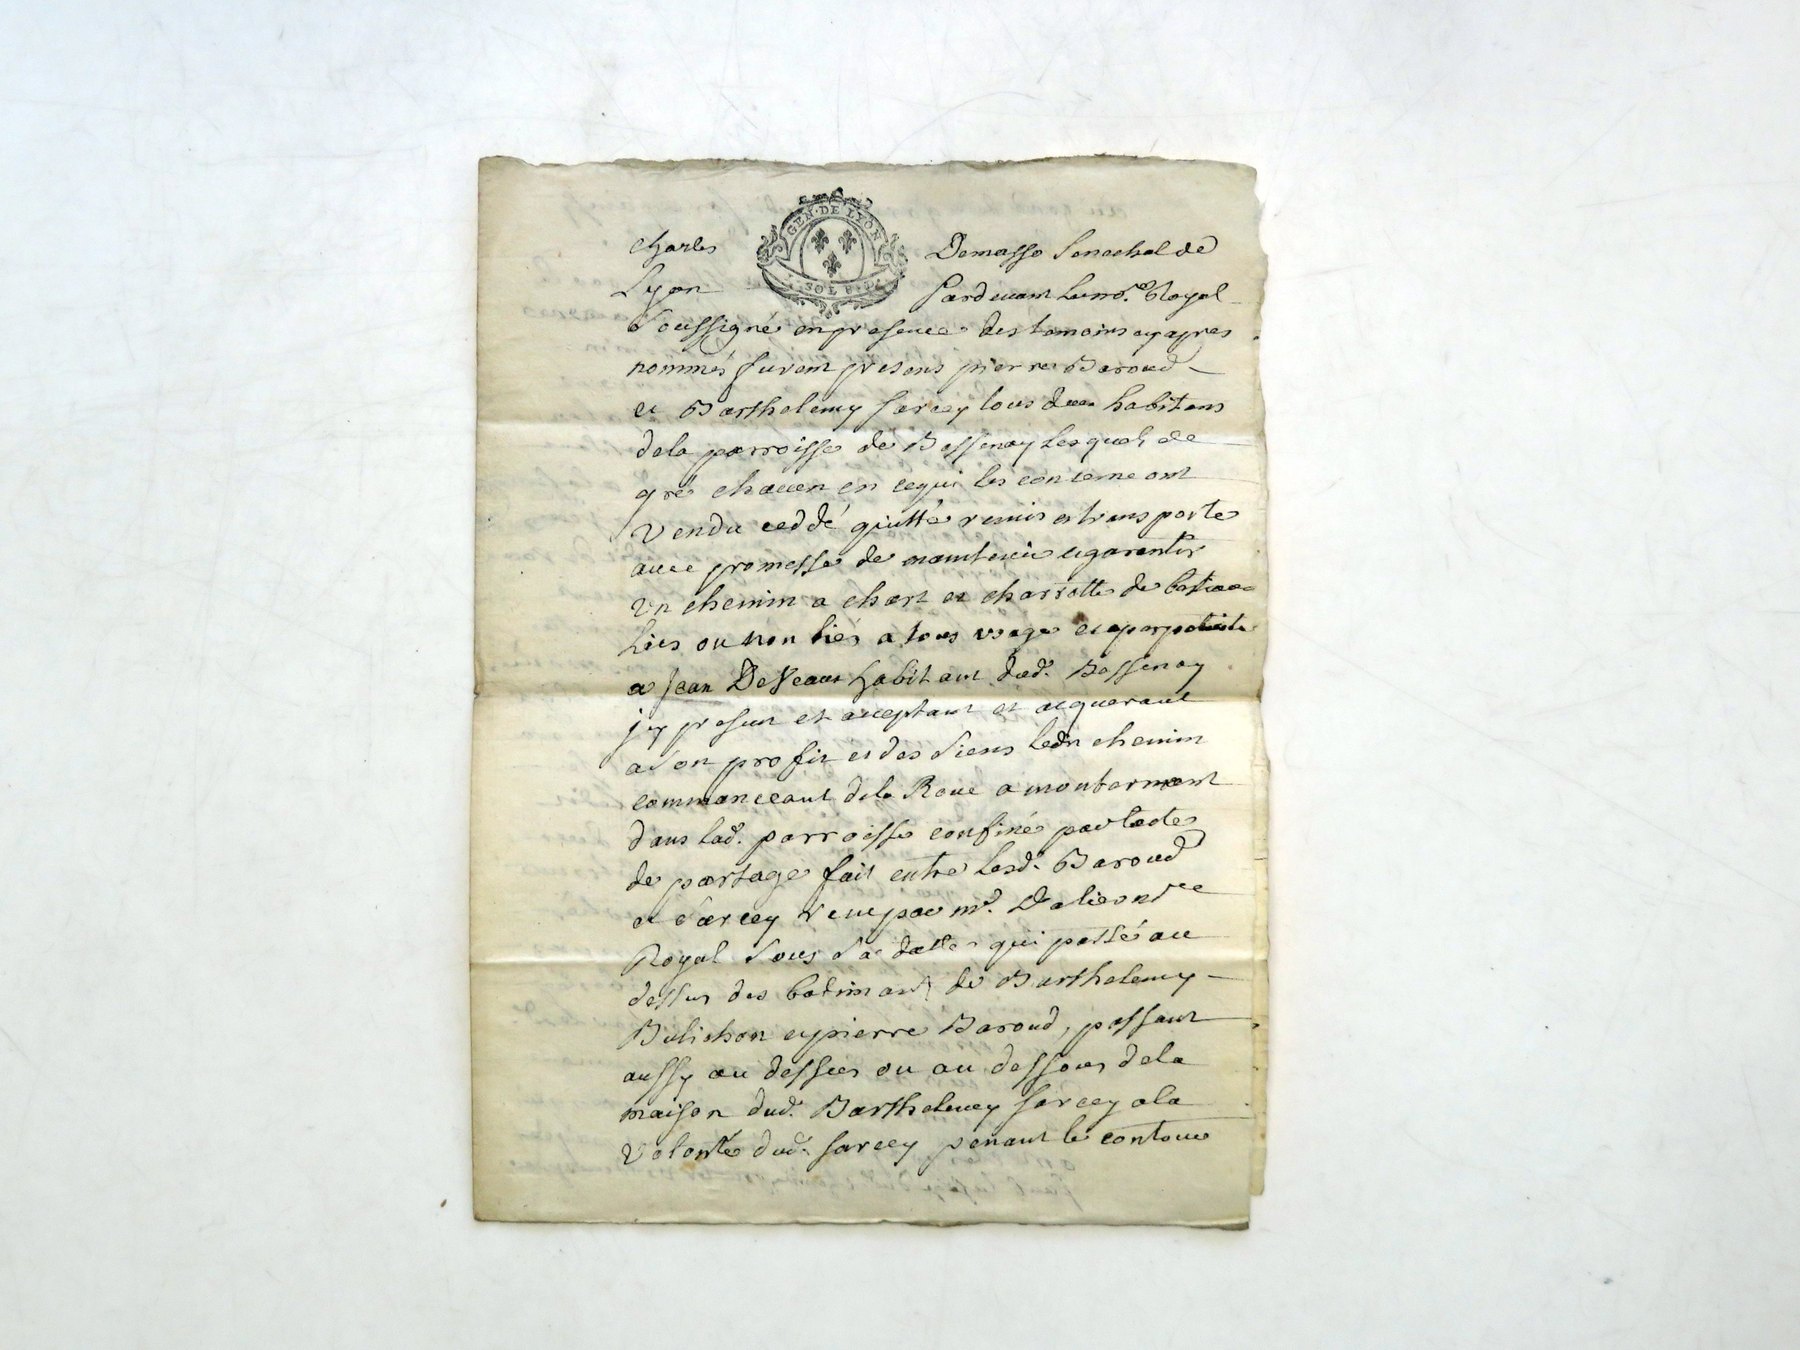 GEN · DE LYON
SOL 8 · D
Charles Demasso Senechal de
Lyon Pardevant le no.re Royal
Soussigné en presence des temoins cy apres
nommés furent presens pierre Baroud
et Barthelemy Sarcey tous deux habitans
dela parroisse de Bessenay Lesquels de
gré chacun en ce qui les concerne ont
Vendu ceddé quitté remis et transporté
avec promesse de maintenir et garentir
Un chemin a chart et charrotte de bestiaux
Liés ou non liés a tous usage et a perpetuité
a Jean DeVeaux habitant dud. Bessenay
jcy present et acceptant et acquerant
a Son profit et des Siens Ledn chemin
commanceant dela Roue a montermant
dans lad. parroisse confiné par lacte
de partage fait entre Lesd. Baroud
et Sarcey Receu par m.e Dalier no.re
Royal Sous Sa datte qui passé au
dessus des batimans de Barthelemy
Bulichon et pierre Baroud, passant
aussy au dessus ou au dessous dela
maison dud. Barthelemy Sarcey a la
Volonté dud. Sarcey penant le contour